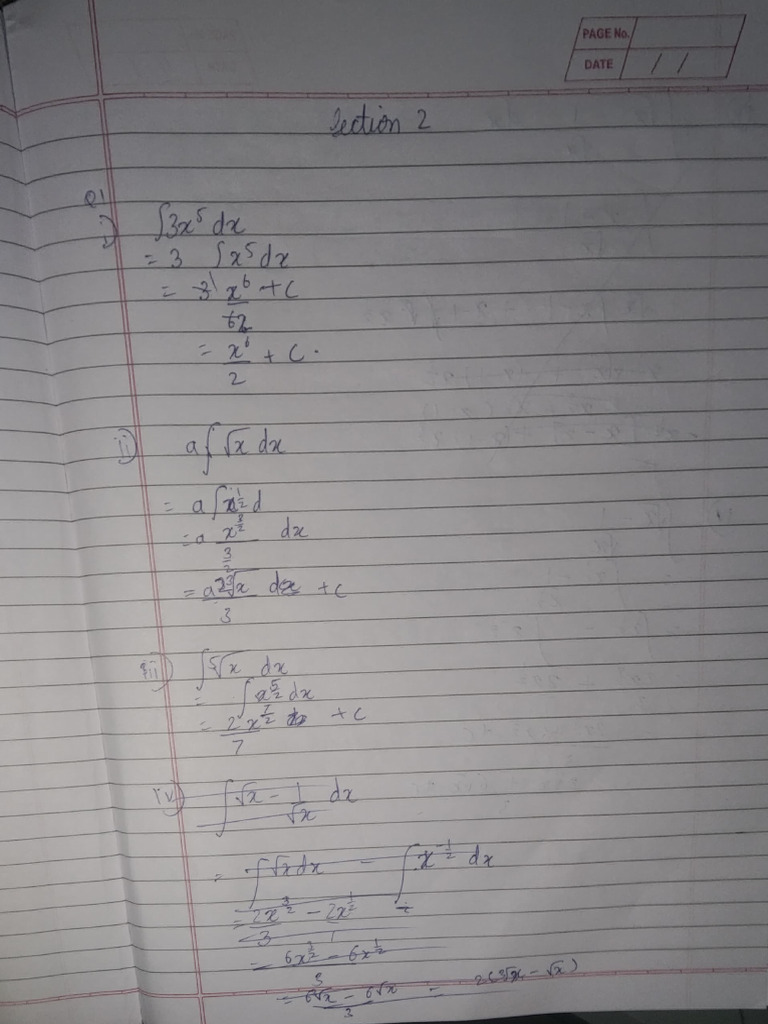 PAGE No.
DATE / /
Section 2
Q1
i) ∫3x⁵ dx
= 3 ∫x⁵ dx
= 3 1 x⁶ + c
6 2
= x⁶ + c.
2
ii) a∫√x dx
= a∫x^½ d
= a x^(3/2) dx
3/2
= a2³√x dx + c
3
iii) ∫⁵√x dx
= ∫x^(5/2) dx
= 2x^(7/2) dx + c
7
iv) ∫√x - 1 dx
√x
= ∫√x dx - ∫x^(-½) dx
= 2x^(3/2) - 2x^(1/2)
3 1
= 6x^(3/2) - 6x^(1/2)
3
= 6³√x - 6√x = 2(³√x - √x)
3